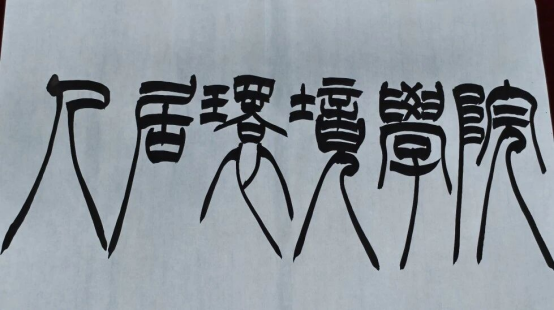 人居環境學院